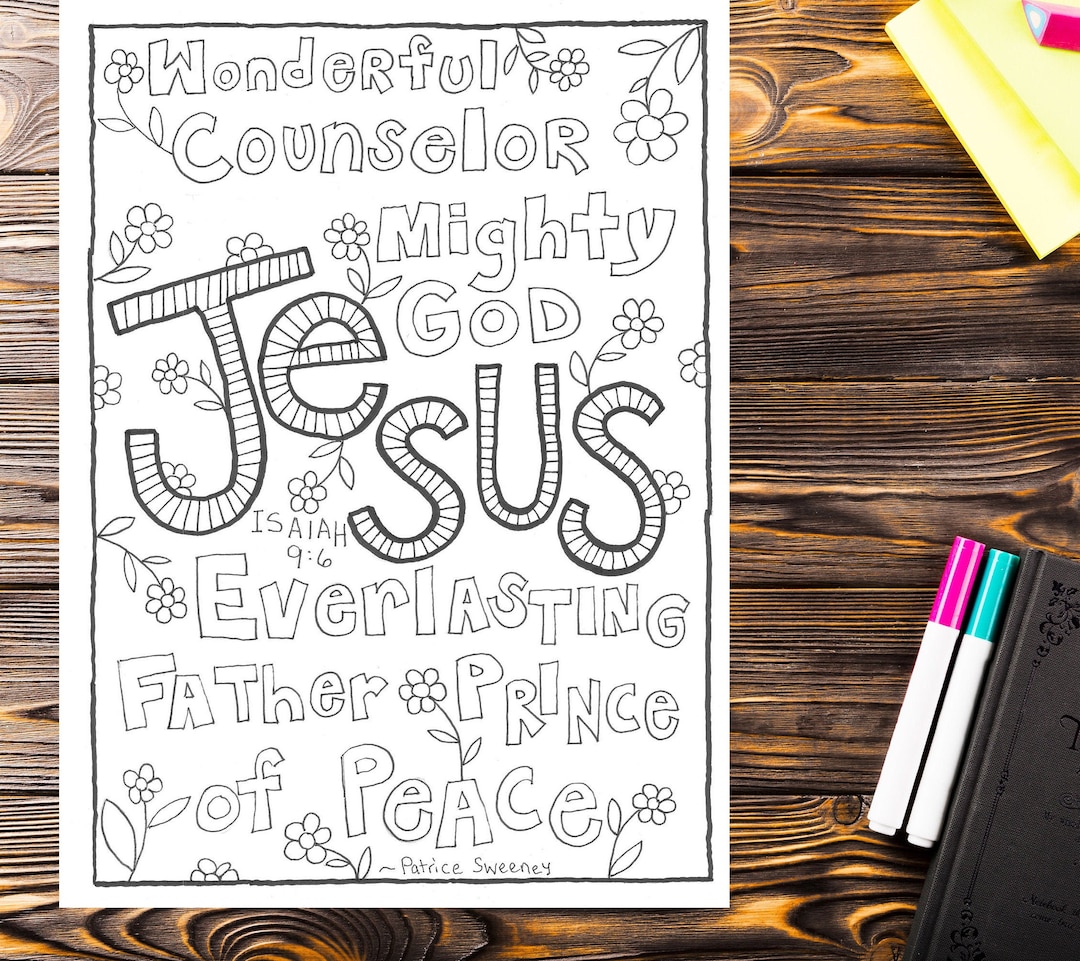 Wonderful
Counselor
Mighty
God
Jesus
ISAIAH
9:6
Everlasting
Father Prince
of Peace
~Patrice Sweeney